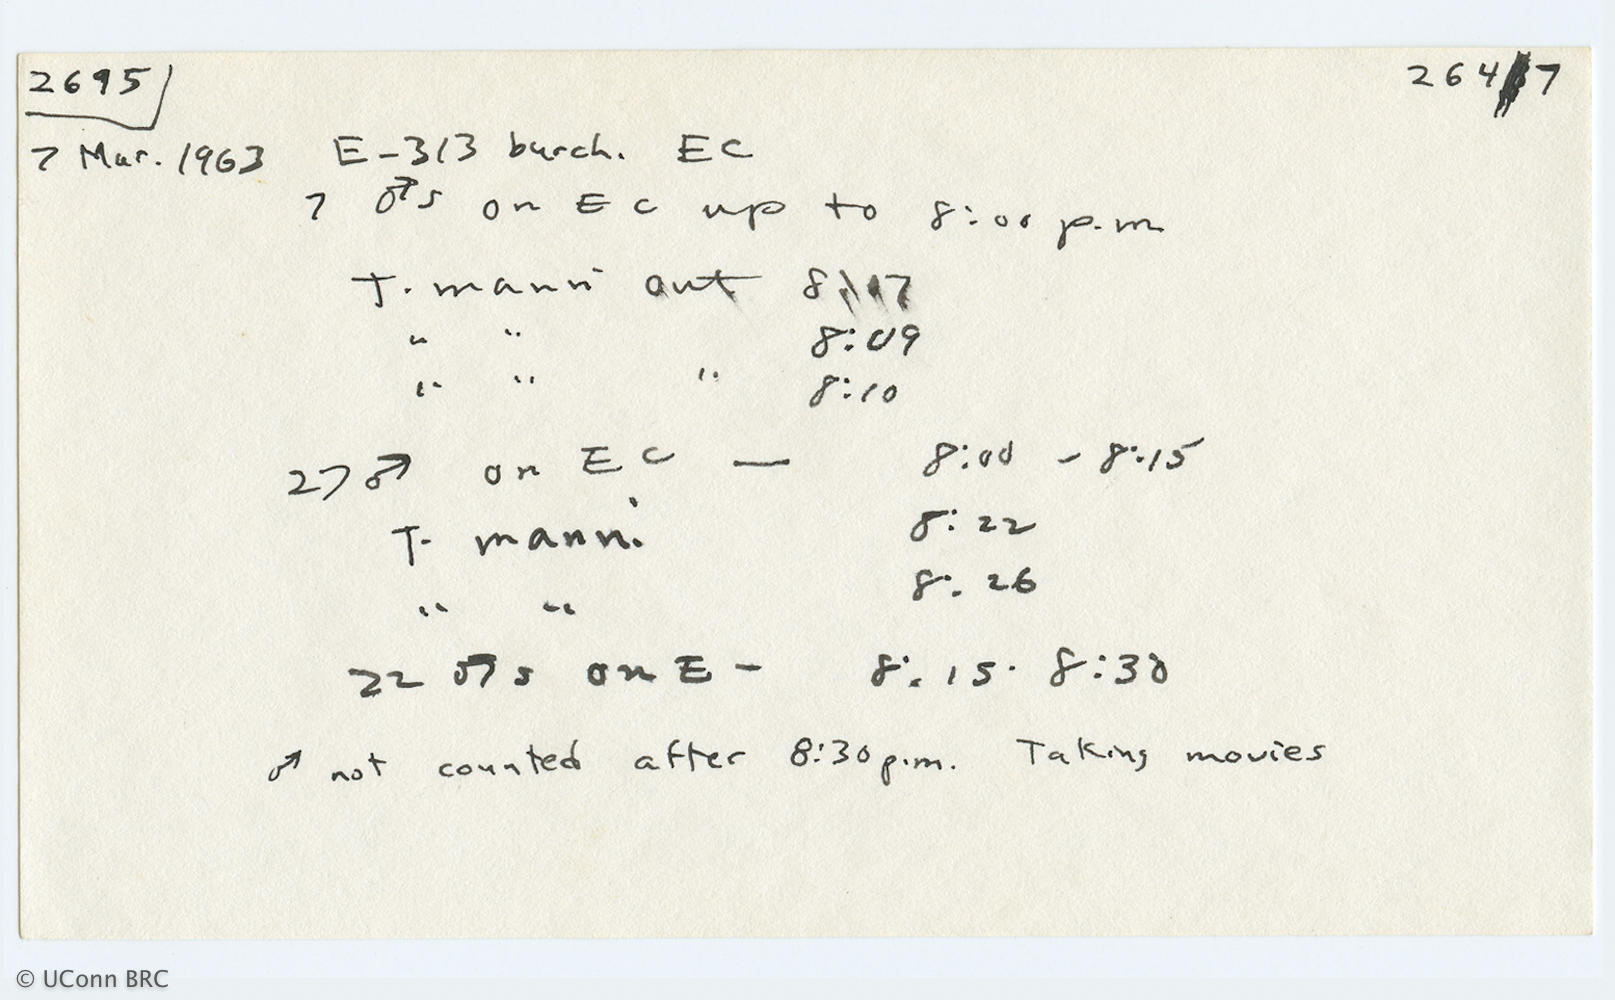 2695 264 7
7 Mar. 1963 E-313 burch. EC
7 ♂s on EC up to 8:00 p.m
T. manni out 8:07
" " 8:09
" " " 8:10
27 ♂ on EC — 8:00 - 8:15
T- manni 8:22
" " 8:26
22 ♂s on E - 8:15- 8:30
♂ not counted after 8:30 p.m. Taking movies
© UConn BRC